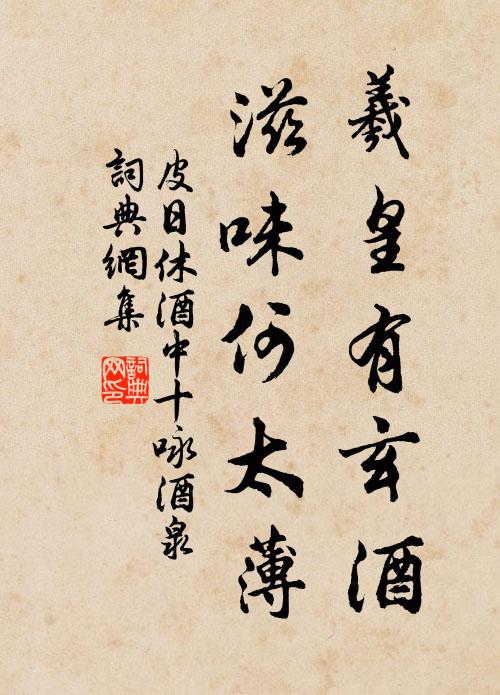 羲皇有玄酒
滋味何太薄
皮日休酒中十咏酒泉
詞典網集
詞典網印